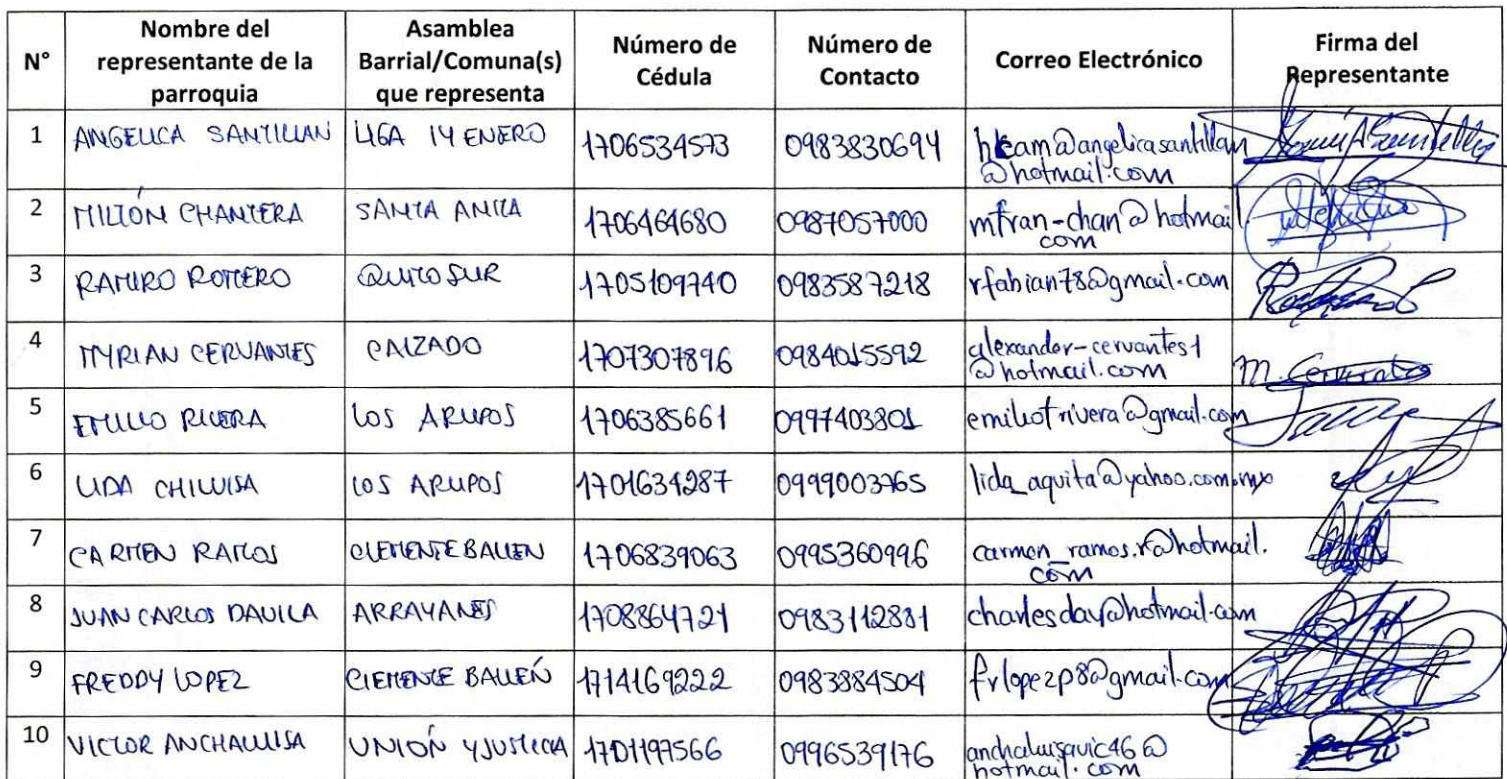 N° Nombre del representante de la parroquia Asamblea Barrial/Comuna(s) que representa Número de Cédula Número de Contacto Correo Electrónico Firma del Representante
1 ANGELICA SANTILLAN LIGA 14 ENERO 1706534573 0983830694 hkam@angelicasantillan
@hotmail.com
2 MILTÓN CHANTERA SANTA ANITA 1706464680 0987057000 mfran-chan@hotmail.
com
3 RAMIRO ROMERO QUITO SUR 1705109740 0983587218 rfabian78@gmail.com
4 MYRIAN CERVANTES CALZADO 1707307896 0984015592 alexander-cervantes1
@hotmail.com M. Cervantes
5 EMILIO RIVERA LOS ARUPOS 1706385661 0997403801 emiliofrivera@gmail.com
6 LIDA CHILUISA LOS ARUPOS 1701634287 0999003765 lida_aquita@yahoo.com.mx
7 CARMEN RAMOS CLEMENTE BALLEN 1706839063 0995360996 carmen_ramos.r@hotmail.
com
8 JUAN CARLOS DAVILA ARRAYANES 1708864721 0983112881 charlesdav@hotmail.com
9 FREDDY LOPEZ CLEMENTE BALLEÓN 1714169222 0983884504 frlopezp8@gmail.com
10 VICTOR ANCHALUISA UNION Y JUSTICIA 1701197566 0996539176 anchaluisavic46@
hotmail.com